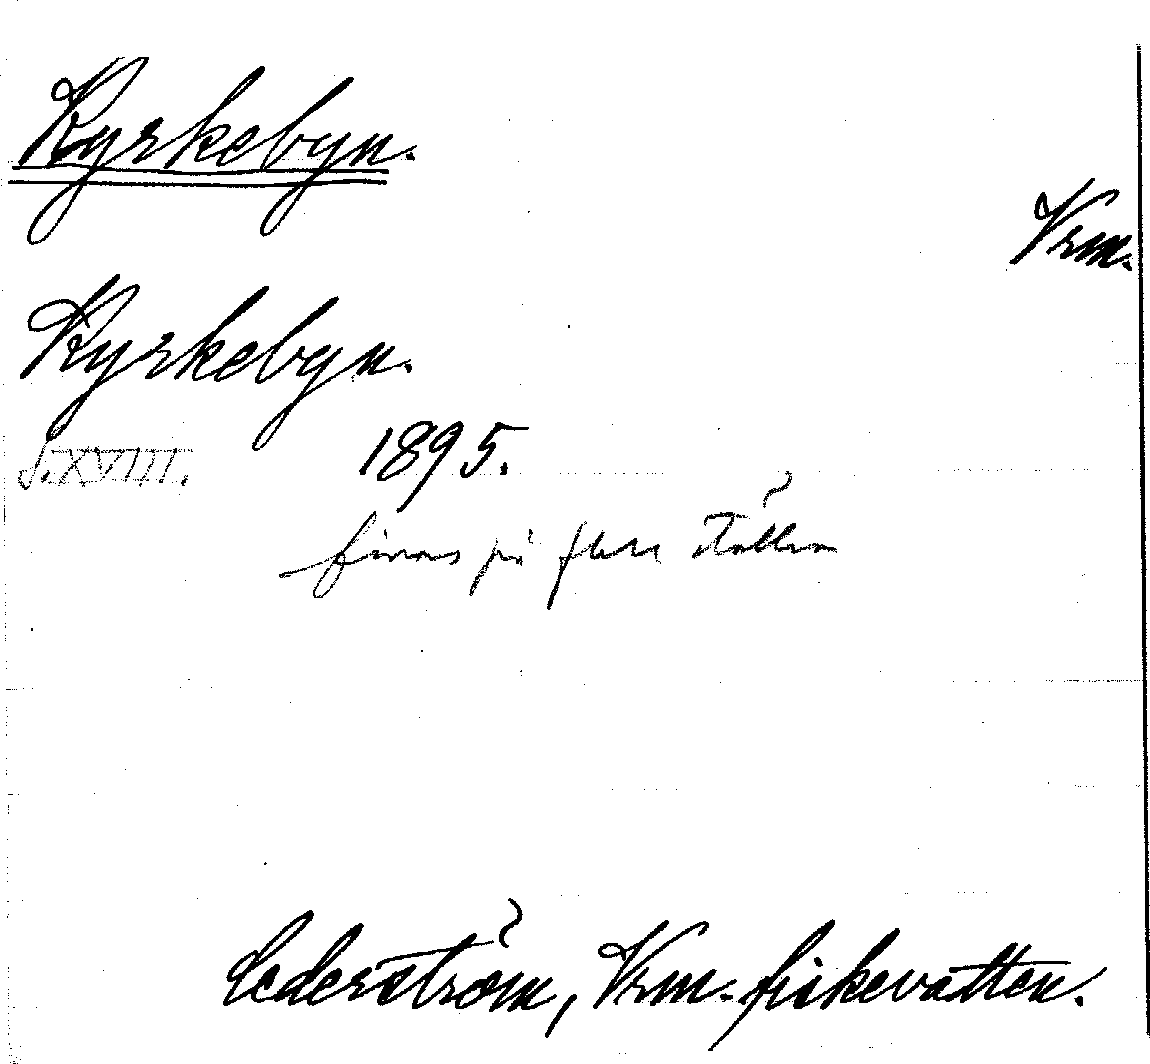 Kyrkebyn.
Vrm.
Kyrkebyn.
S. XVIII. 1895.
finns på flera ställen
Cederström, Vrm. fiskevatten.